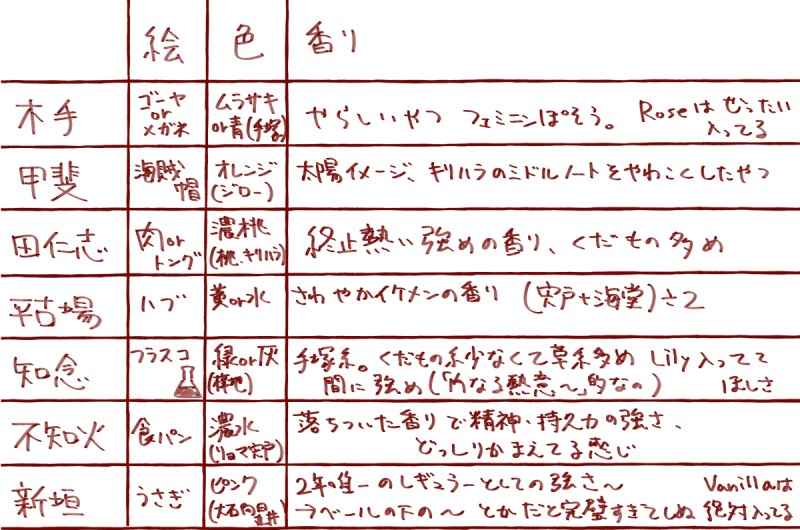 絵 色 香り
木手 ゴーヤ or メガネ ムラサキ or 青(手塚) やらしいやつ フェミニンぽそう。 Roseはぜったい入ってる
甲斐 海賊帽 オレンジ(ジロー) 太陽イメージ、キリハラのミドルノートをやわこくしたやつ
田仁志 肉 or トング 濃桃(桃、キリハラ) 終止熱い強めの香り、くだもの多め
平古場 ハブ 黄or水 さわやかイケメンの香り (宍戸+海堂)さ2
知念 フラスコ 緑or灰 手塚系。くだもの系少なくて草系多め Lily入ってて
間に強め(「内なる熱意〜」的なの) ほしさ
不知火 食パン 濃水(リョマ宍戸) 落ちついた香りで精神・持久力の強さ、
どっしりかまえてる感じ
新垣 うさぎ ピンク 2年唯一のレギュラーとしての強さ〜 Vanillaは
ラベールの下の〜とかだと完璧すぎてしぬ 絶対入ってる